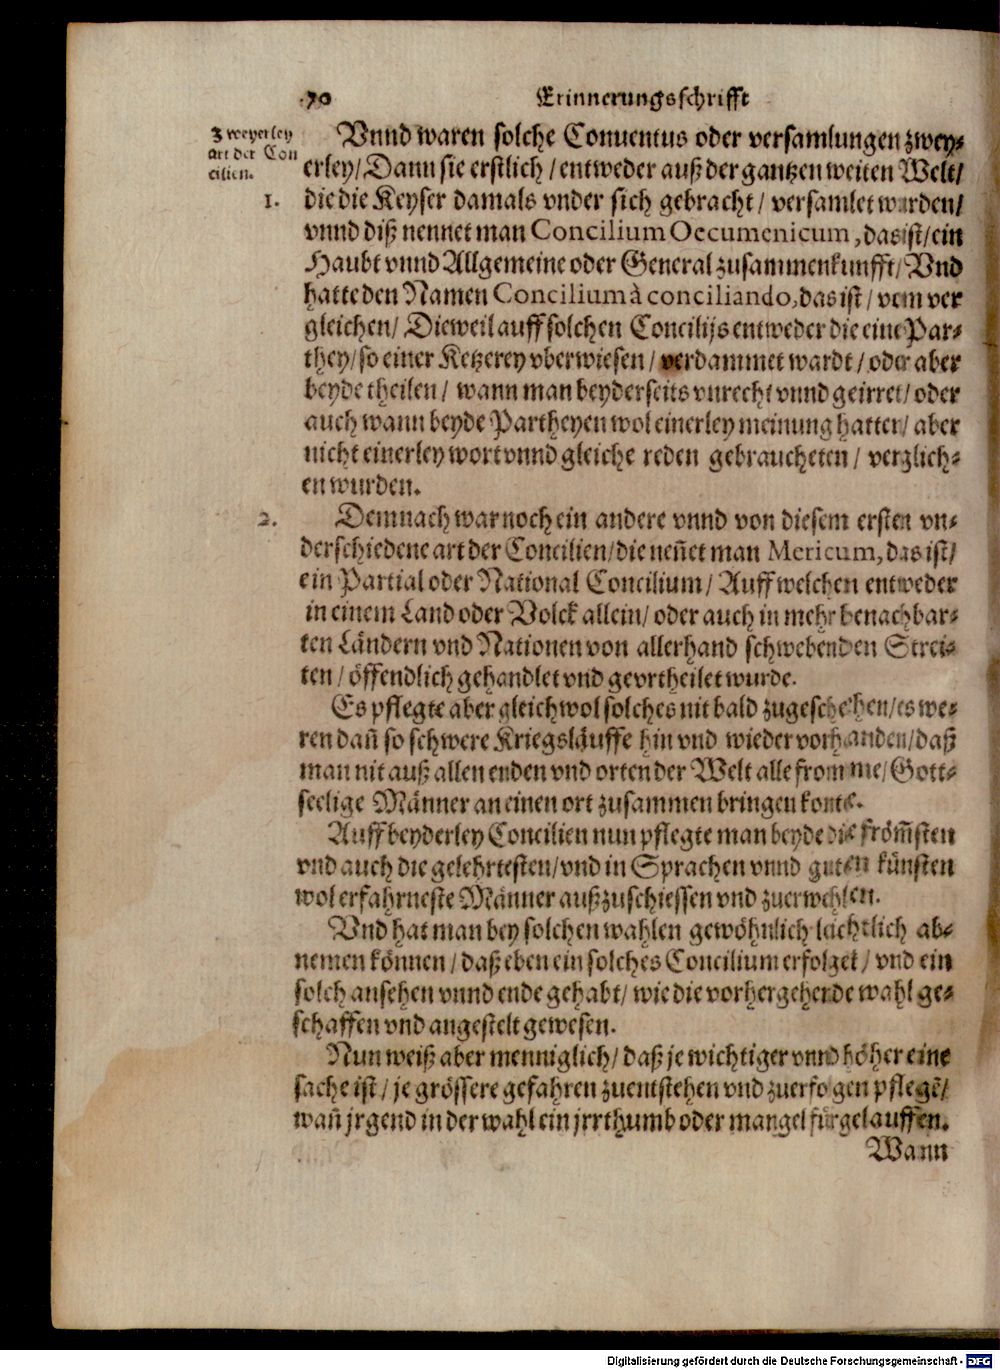 70 Erinnerungsschrifft
Zweyerley
art der Con
cilien.
Vnnd waren solche Conuentus oder versamlungen zwey⸗
erley/ Dann sie erstlich / entweder auß der gantzen weiten Welt/
1. die die Keyser damals vnder sich gebracht / versamlet wurden/
vnnd diß nennet man Concilium Oecumenicum, das ist/ ein
Haubt vnnd Allgemeine oder General zusammenkunfft/ Vnd
hatte den Namen Concilium à conciliando, das ist / vom ver
gleichen/ Dieweil auff solchen Concilijs entweder die eine Par⸗
they/ so einer Ketzerey vberwiesen / verdammet wardt / oder aber
beyde theilen / wann man beyderseits vnrecht vnnd geirret/ oder
auch wann beyde Partheyen wol einerley meinung hatten/ aber
nicht einerley wort vnnd gleiche reden gebraucheten / verglich⸗
en wurden.
2. Demnach war noch ein andere vnnd von diesem ersten vn⸗
derschiedene art der Concilien/ die neñet man Mericum, das ist/
ein Partial oder National Concilium / Auff welchen entweder
in einem Land oder Volck allein/ oder auch in mehr benachbar⸗
ten Ländern vnd Nationen von allerhand schwebenden Strei⸗
ten / öffendlich gehandlet vnd gevrtheilet wurde.
Es pflegte aber gleichwol solches nit bald zugeschehen/ es we⸗
ren dañ so schwere Kriegsläuffe hin vnd wieder vorhanden/ daß
man nit auß allen enden vnd orten der Welt alle fromme/ Gott⸗
seelige Männer an einen ort zusammen bringen konte.
Auff beyderley Concilien nun pflegte man beyde die fröm̃sten
vnd auch die gelehrtesten/ vnd in Sprachen vnnd guten künsten
wol erfahrneste Männer außzuschiessen vnd zuerwehlen.
Vnd hat man bey solchen wahlen gewöhnlich leichtlich ab⸗
nemen können / daß eben ein solches Concilium erfolget / vnd ein
solch ansehen vnnd ende gehabt/ wie die vorhergehende wahl ge⸗
schaffen vnd angestelt gewesen.
Nun weiß aber menniglich / daß je wichtiger vnnd höher eine
sache ist / je grössere gefahren zuentstehen vnd zuerfolgen pflegẽ/
wañ jrgend in der wahl ein jrrthumb oder mangel fürgelauffen.
Wann
Digitalisierung gefördert durch die Deutsche Forschungsgemeinschaft - DFG